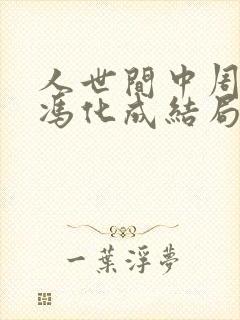 人世間中周
馮化成結局
一葉浮夢